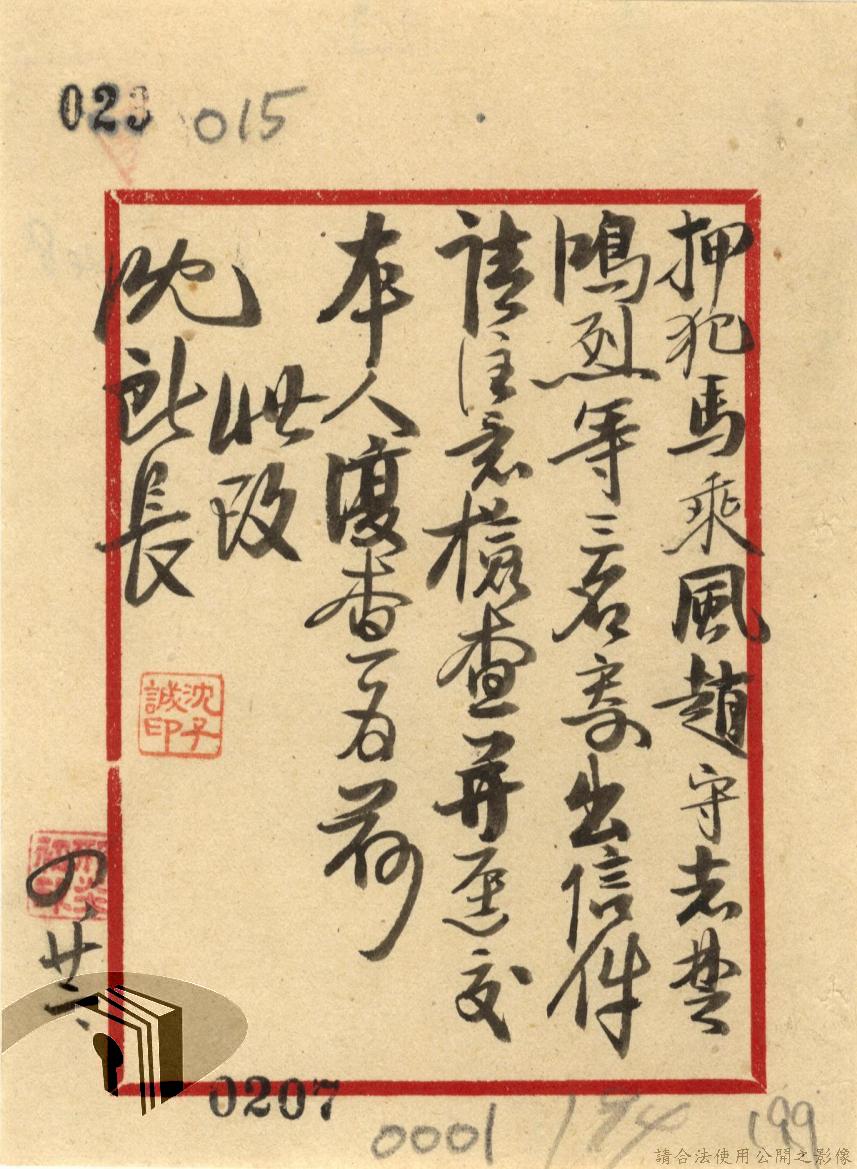 023 015
押犯馬乘風趙守志楚
鳴烈等三名寄出信件
請注意檢查并逕交
本人復查為荷
此致
沈所長
沈子誠印
四、廿
0207
0001 194 199
請合法使用公開之影像